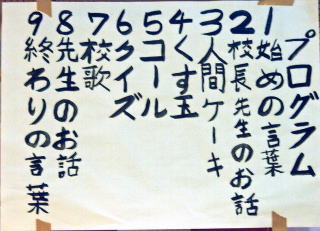 プログラム
1始めの言葉
2校長先生のお話
3人間ケーキ
4くす玉
5コール
6クイズ
7校歌
8先生のお話
9終わりの言葉